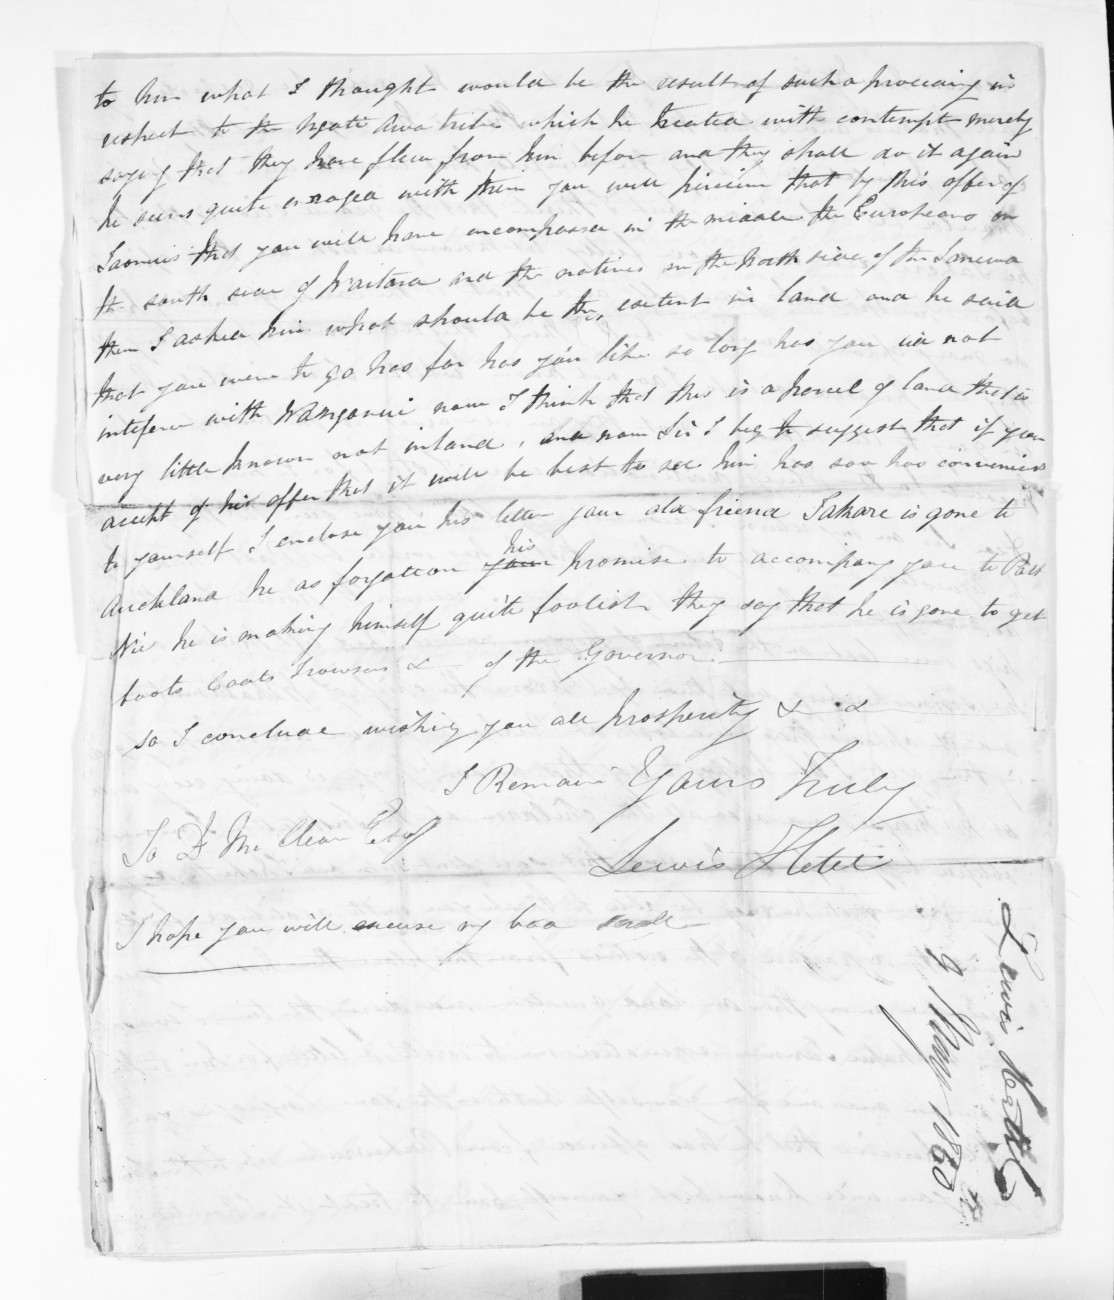 to him what I thought would be the result of such a proceeing in
respect to the Ngate Awa tribe which he treated with contempt merely
saying that they have flew from him before and they shall do it again
he seems quite enraged with them you will perceive that by this offer of
that you will have encompassed in the middle the Europeans on
the south side of Waitara and the natives on the North side of the
then I asked him what should be the extent in land and he said
that you were to go has far has you like so long has you did not
interfere with Wanganui now I think that this is a parcel of land that is
very little known not inland, and now Sir I beg to suggest that if you
accept of his offer that it will be best to see him has soon has convenient
to yourself I enclose you his letter your old friend Takare is gone to
Auckland he as forgotten his promise to accompany you to Port
Nic he is making himself quite foolish they say that he is gone to get
boots Coats Trowsers & of the Governor
so I conclude wishing you all prosperity & &
I Remain Yours Truly
To D. McClean Esq
Lewis Hetet
I hope you will excuse my bad
Lewis
9 May 1850